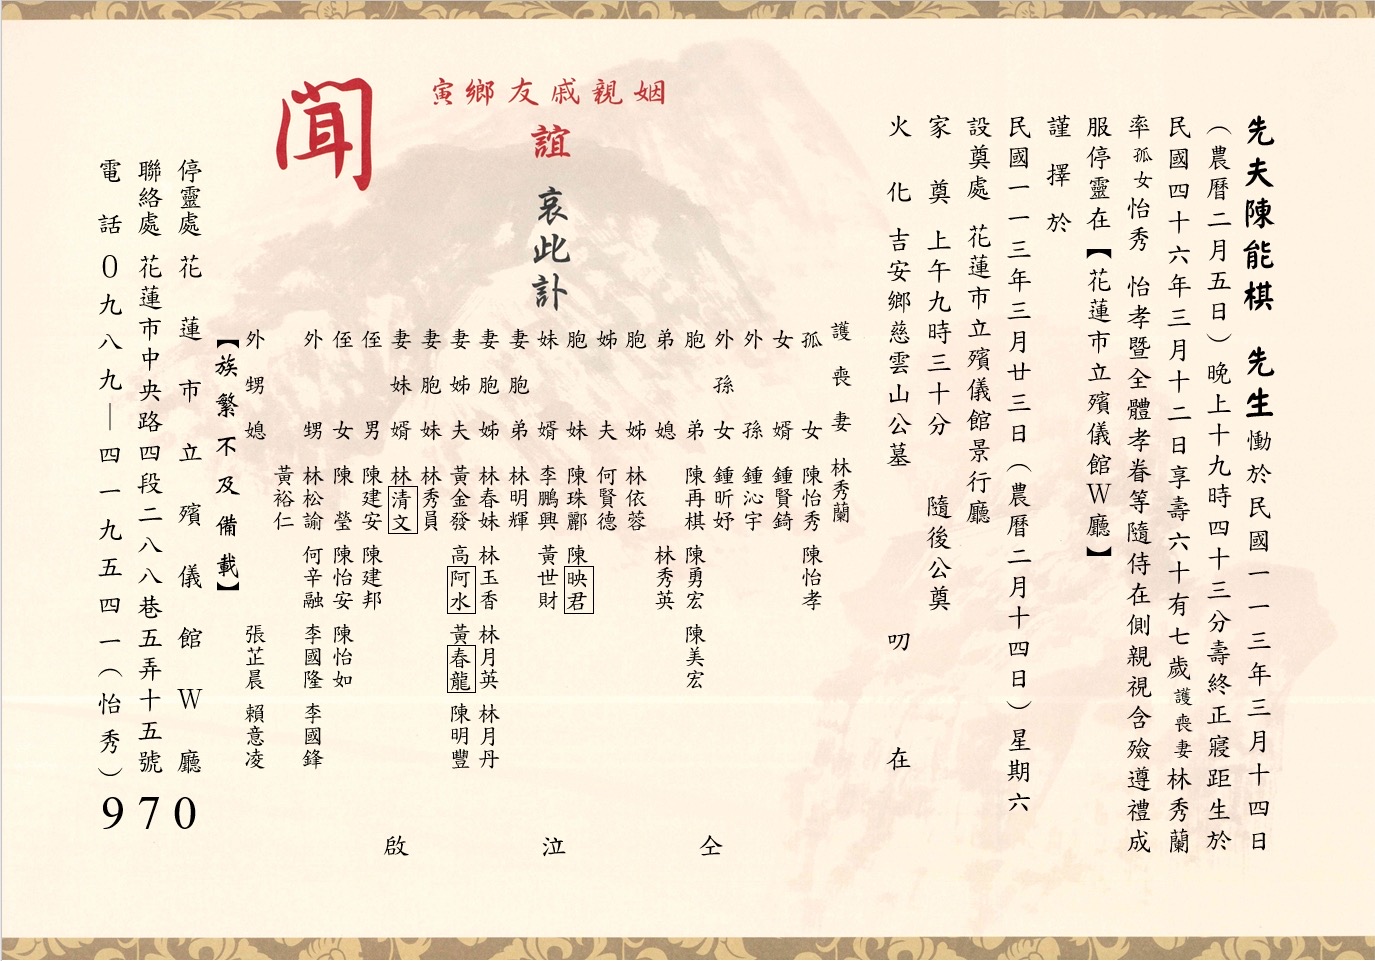 先夫陳能棋 先生慟於民國一一三年三月十四日
（農曆二月五日）晚上十九時四十三分壽終正寢距生於
民國四十六年三月十二日享壽六十有七歲護喪妻林秀蘭
率孤女怡秀 怡孝暨全體孝眷等隨侍在側親視含殮遵禮成
服停靈在【花蓮市立殯儀館W廳】
謹擇於
民國一一三年三月廿三日（農曆二月十四日）星期六
設奠處 花蓮市立殯儀館景行廳
家奠 上午九時三十分 隨後公奠
火化 吉安鄉慈雲山公墓 叨在
姻親戚友鄉寅
誼
哀此訃
聞
護喪妻 林秀蘭
孤女 陳怡秀 陳怡孝
女婿 鍾賢錡
外孫 鍾沁宇
外孫女 鍾昕妤
胞弟 陳再棋 陳勇宏 陳美宏
弟媳 林秀英
胞姊 林依蓉
姊夫 何賢德
胞妹 陳珠酈 陳映君
妹婿 李鵬興 黃世財
妻胞弟 林明輝
妻胞姊 林春妹 林玉香 林月英 林月丹
妻姊夫 黃金發 高阿水 黃春龍 陳明豐
妻胞妹 林秀員
妻妹婿 林清文
侄男 陳建安 陳建邦
侄女 陳瑩 陳怡安 陳怡如
外甥 林松諭 何辛融 李國隆 李國鋒
黃裕仁
外甥媳 張芷晨 賴意凌
【族繁不及備載】
仝泣啟
停靈處 花蓮市立殯儀館W廳
聯絡處 花蓮市中央路四段二八八巷五弄十五號
電話 0九八八九—四一九五四一（怡秀）
970